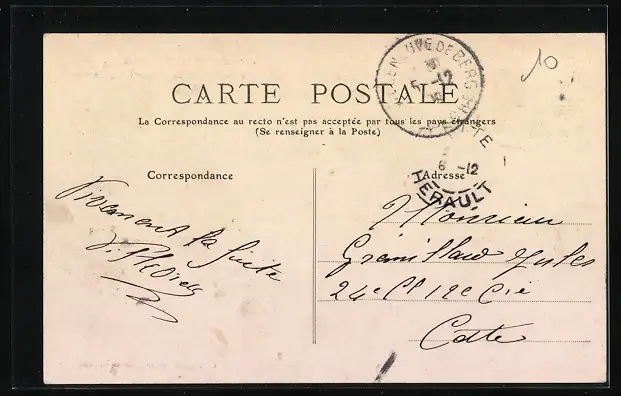 10
CARTE POSTALE
La Correspondance au recto n'est pas acceptée par tous les pays étrangers
(Se renseigner à la Poste)
NEUVE DE BERG
5 -12
CETTE
6 -12
HERAULT
Correspondance
Adresse
Vivement la suite
Monsieur
Grémillard Jules
24e Cl 12e Cie
Cette